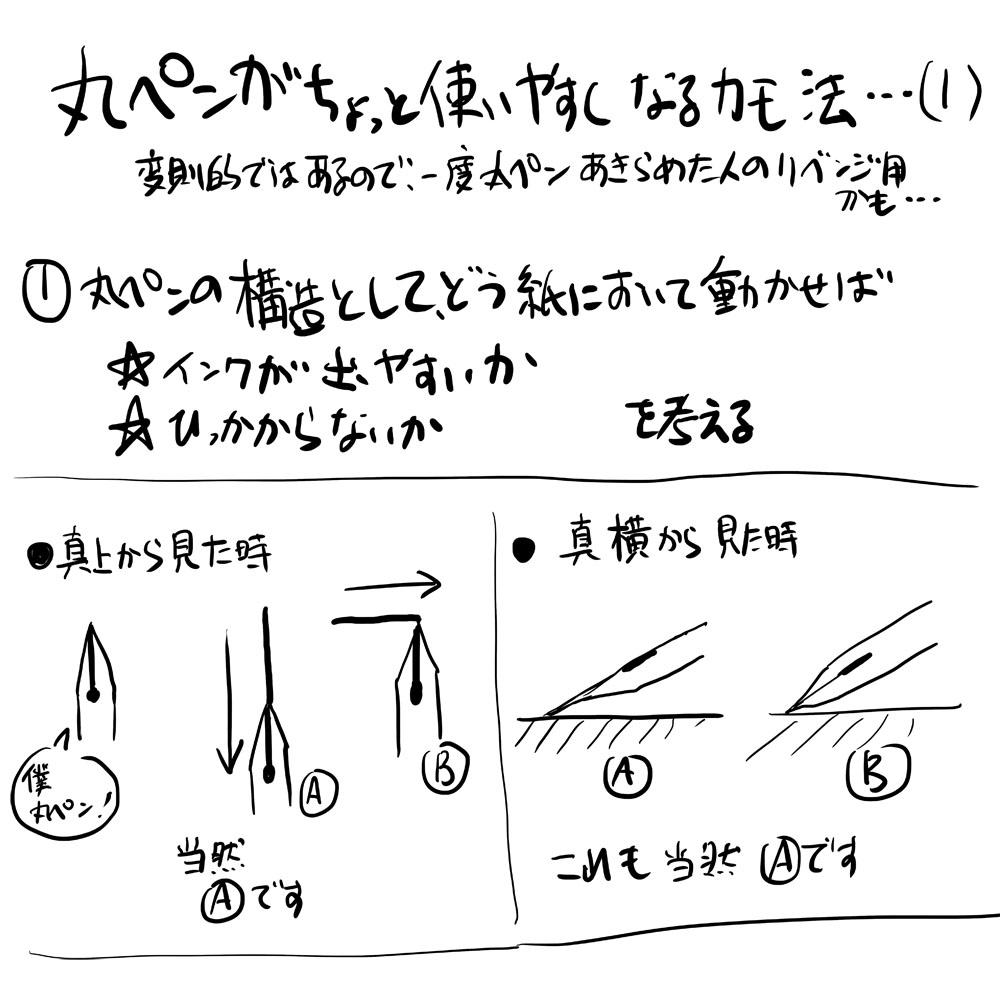 丸ペンがちょっと使いやすくなるカモ法…(1)
変則的ではあるので、一度丸ペンあきらめた人のリベンジ用
かも…
① 丸ペンの構造として、どう紙において動かせば
☆インクが出やすいか
☆ひっかからないか を考える
●真上から見た時
僕
丸ペン!
Ⓐ
Ⓑ
当然
Ⓐです
● 真横から見た時
Ⓐ
Ⓑ
これも当然Ⓐです